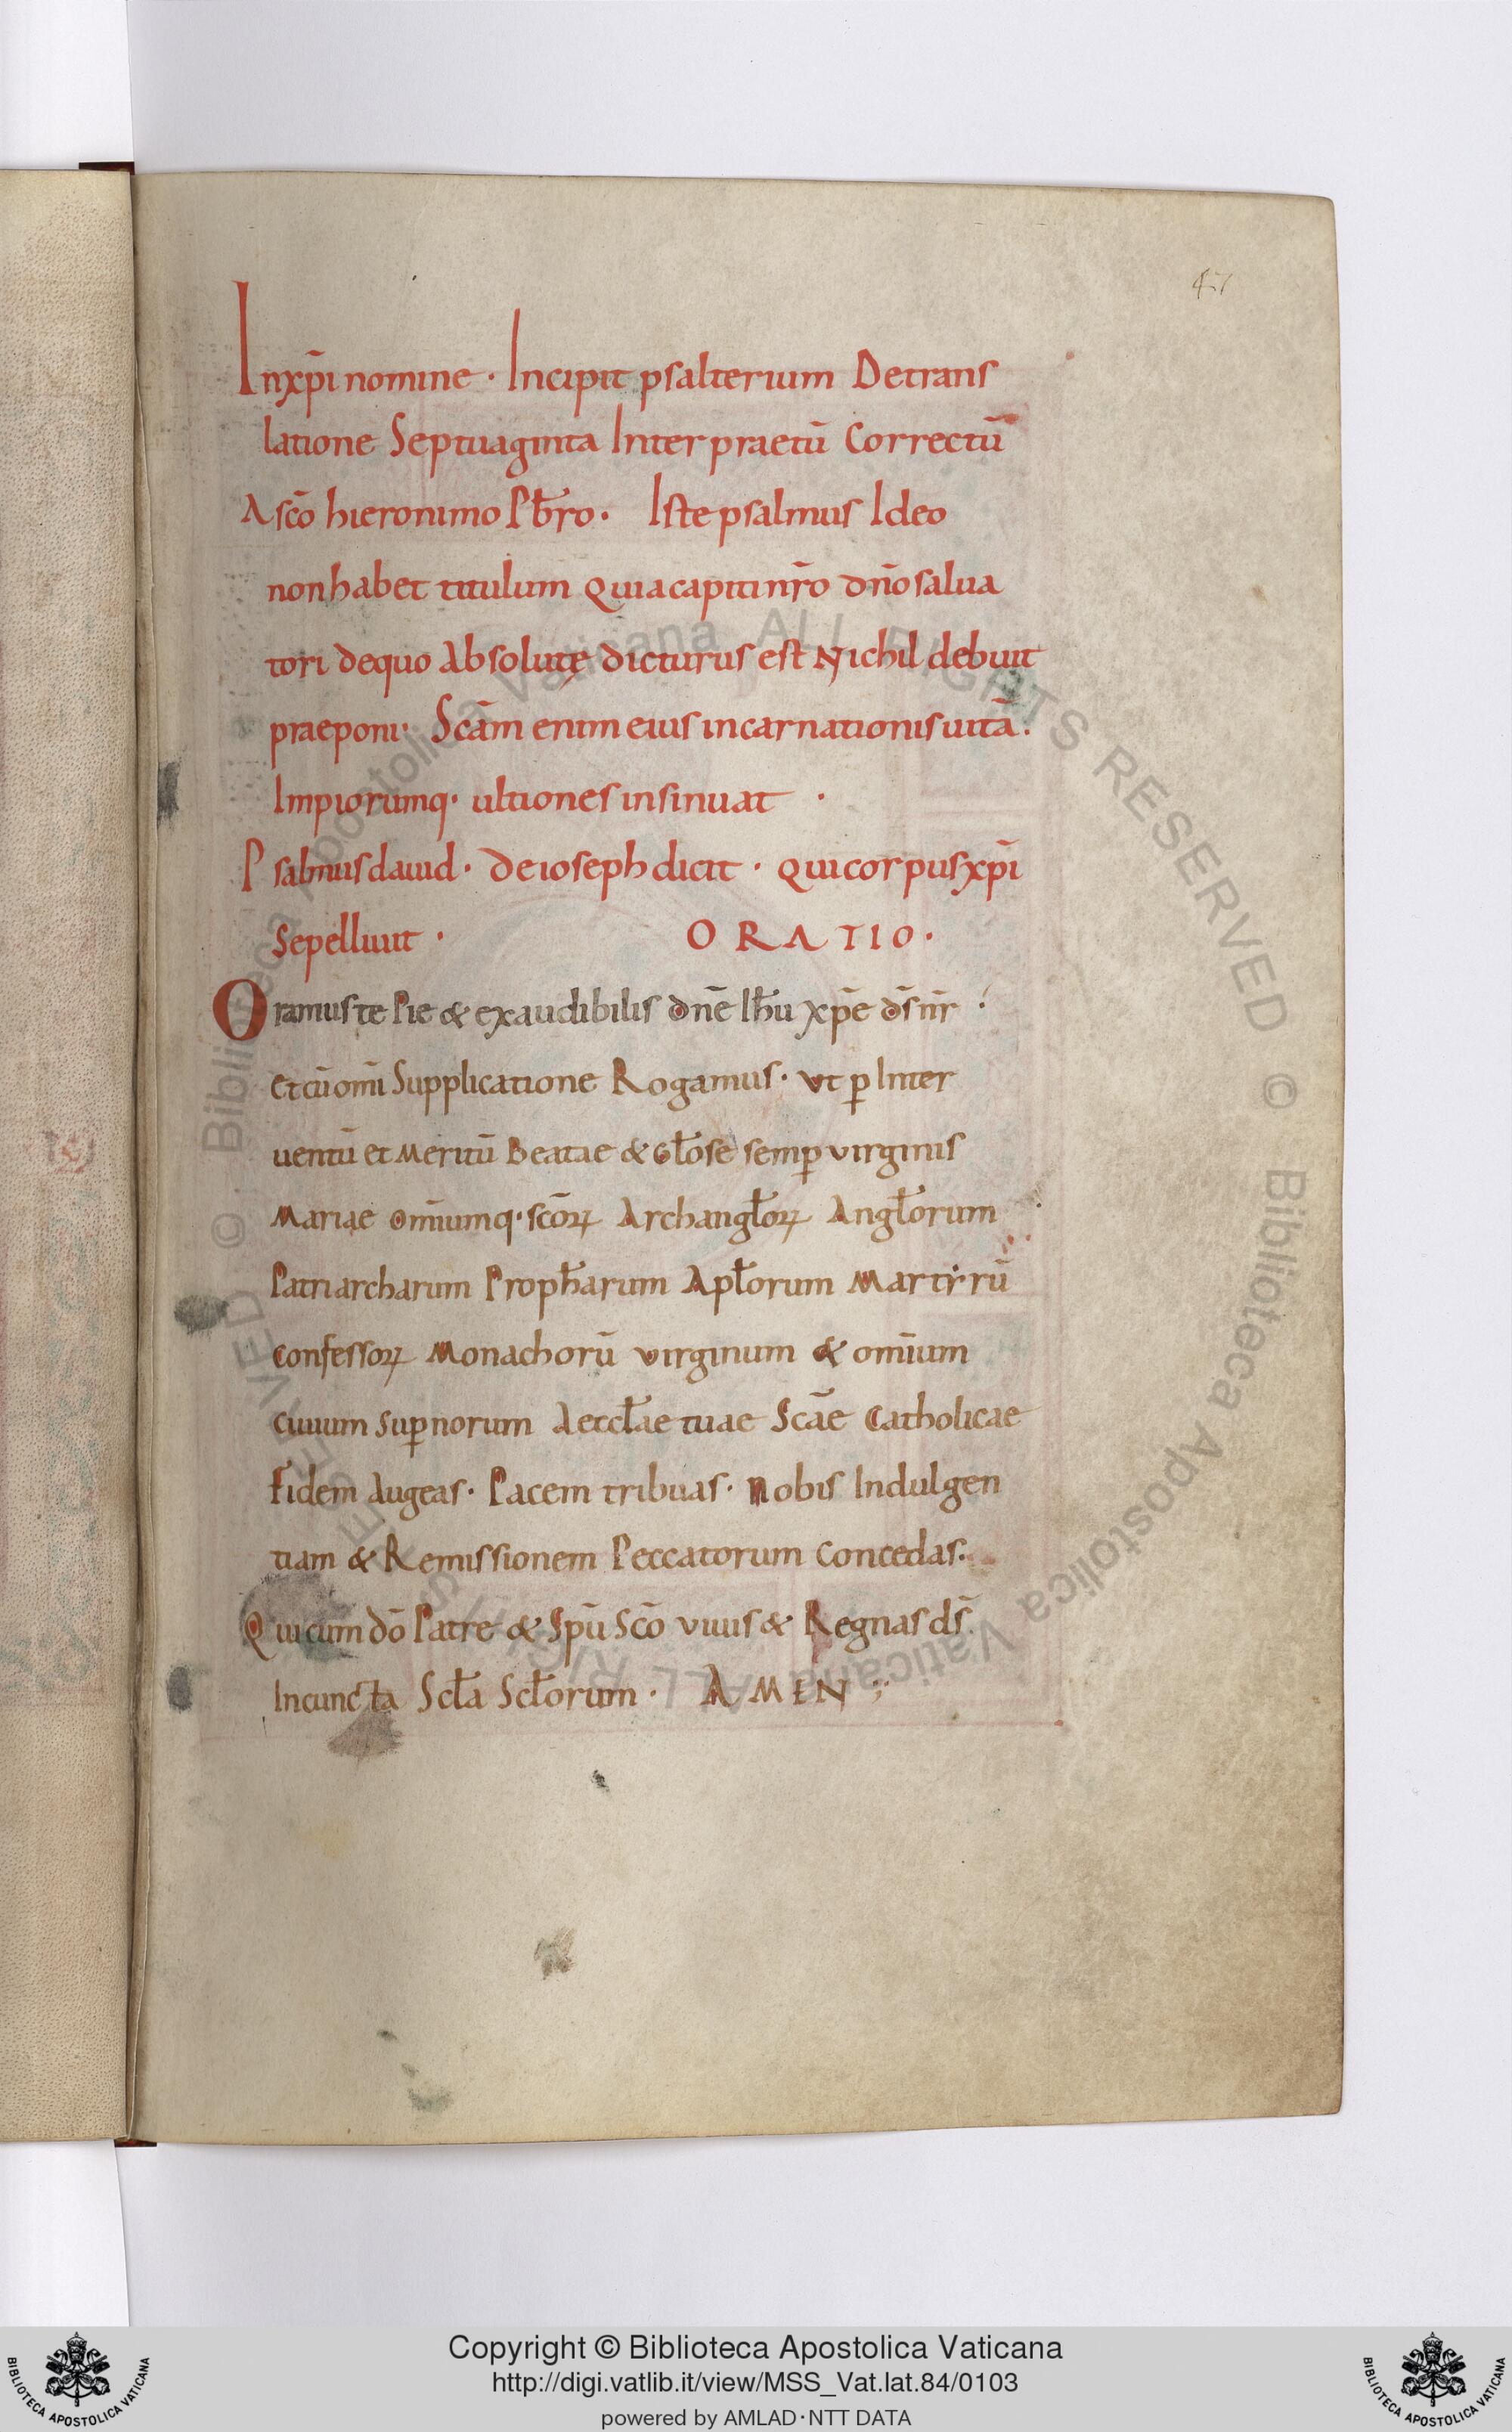 47
In xp̄i nomine · Incipit psalterium De trans
latione Septuaginta Interpraetū Correctū
A scō hieronimo Pb̄ro · Iste psalmus Ideo
non habet titulum Quia capiti nr̄o dn̄o salua
tori de quo Absolutę dicturus est Nichil debuit
praeponi · Scām enim eius incarnationis uitā ·
Impiorumq· ultiones insinuat ·
Psalmus dauid · De ioseph dicit · Qui corpus xp̄i
Sepelliuit · ORATIO ·
Oramus te Pie & exaudibilis dn̄e Ih̄u xp̄e ds̄ nr̄ ·
Et cū om̄i Supplicatione Rogamus · Vt ꝑ Inter
uentū et Meritū Beatae & Gƚose semꝑ virginis
Mariae om̄iumq· scōꝝ Archangƚoꝝ Angƚorum ·
Patriarcharum Propħarum Apƚorum Martẏrū
Confessoꝝ Monachorū virginum & om̄ium
Ciuium Suꝑnorum Aeccƚae tuae Scāe Catholicae
Fidem Augeas · Pacem tribuas · Nobis Indulgen
tiam & Remissionem Peccatorum Concedas ·
Qui cum dō Patre & Spū Scō viuis & Regnas ds̄
In cuncta Scƚa Scƚorum · AMEN
© Biblioteca Apostolica Vaticana ALL RIGHTS RESERVED © Biblioteca Apostolica Vaticana ALL RIGHTS RESERVED
Copyright © Biblioteca Apostolica Vaticana
http://digi.vatlib.it/view/MSS_Vat.lat.84/0103
powered by AMLAD·NTT DATA
BIBLIOTECA APOSTOLICA VATICANA
BIBLIOTECA APOSTOLICA VATICANA